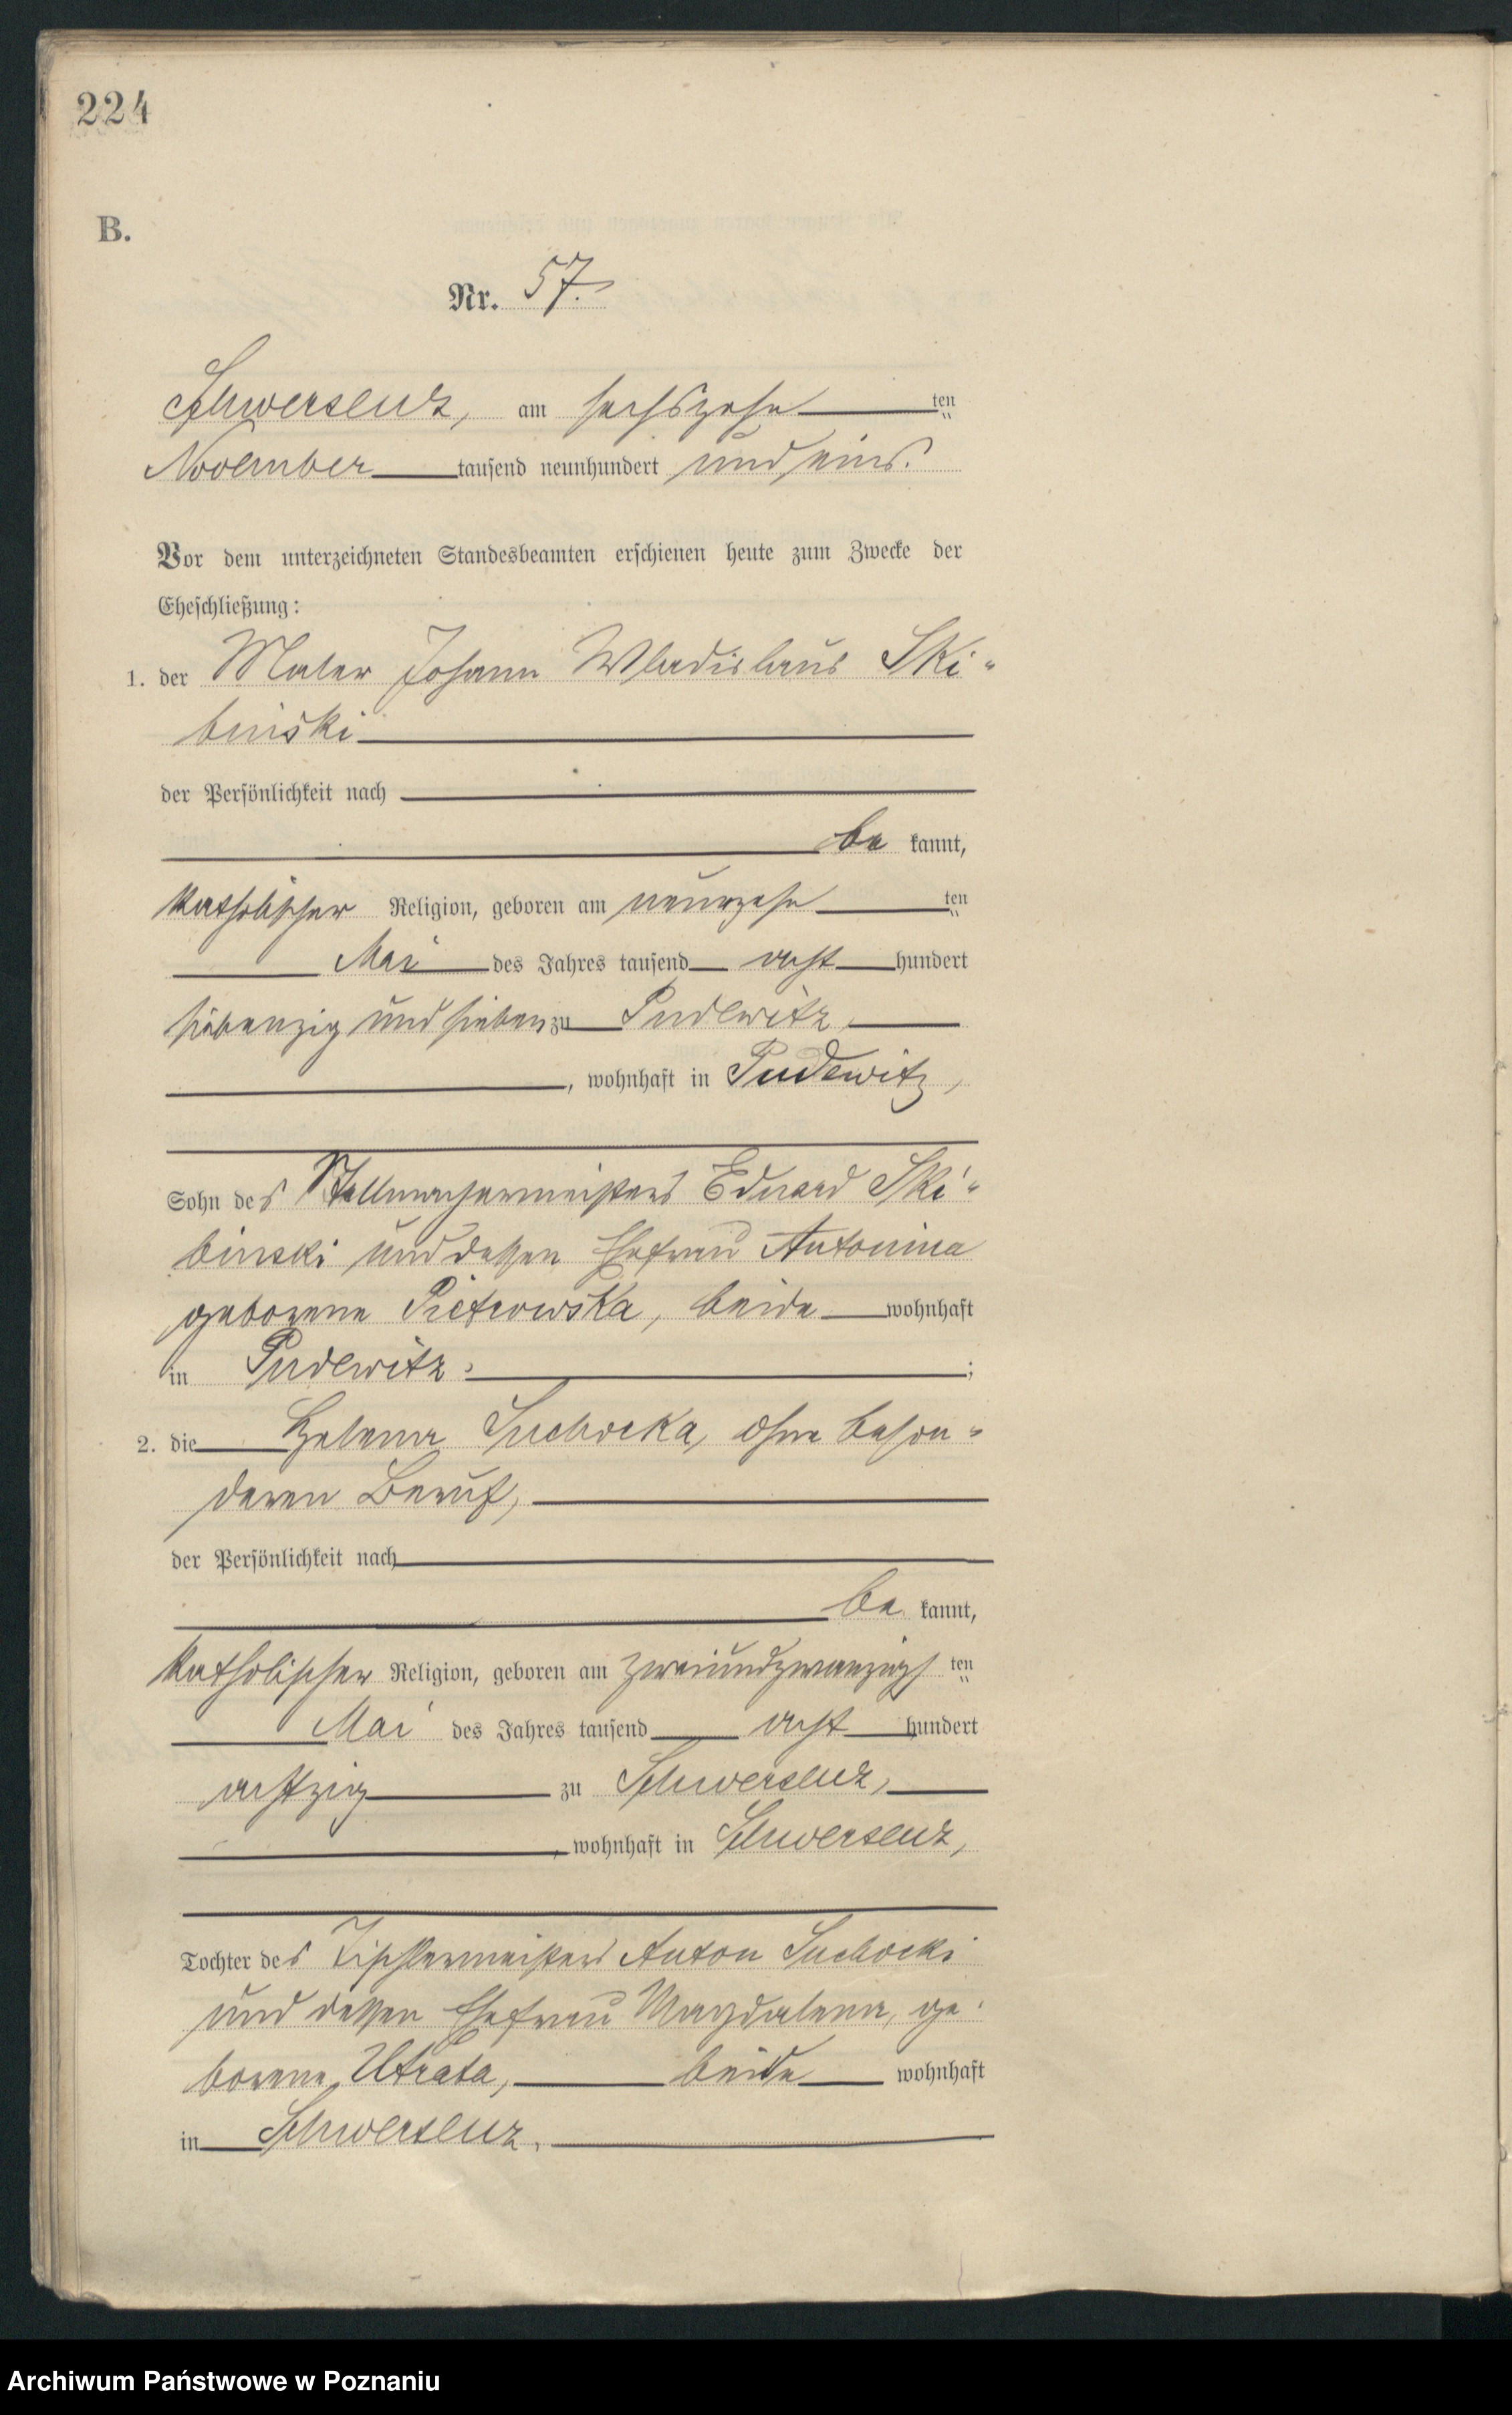 224
B.
Nr. 57.
Schwersenz, am sechszehn ten
November tausend neunhundert und eins.
Vor dem unterzeichneten Standesbeamten erschienen heute zum Zwecke der
Eheschließung:
1. der Maler Johann Wladislaus Ski-
binski
der Persönlichkeit nach
be kannt,
katholischer Religion, geboren am neunzehn ten
Mai des Jahres tausend acht hundert
siebenzig und sieben zu Pudewitz,
, wohnhaft in Pudewitz,
Sohn des Stellmachermeisters Eduard Ski-
binski und dessen Ehefrau Antonina
geborene Pietrowska, beide wohnhaft
in Pudewitz. ;
2. die Helena Suchocka, ohne beson-
deren Beruf,
der Persönlichkeit nach
be kannt,
katholischer Religion, geboren am zweiundzwanzigs ten
Mai des Jahres tausend acht hundert
achtzig zu Schwersenz,
, wohnhaft in Schwersenz,
Tochter des Tischlermeisters Anton Suchocki
und dessen Ehefrau Magdalena, ge-
borene Utrata, beide wohnhaft
in Schwersenz.
Archiwum Państwowe w Poznaniu